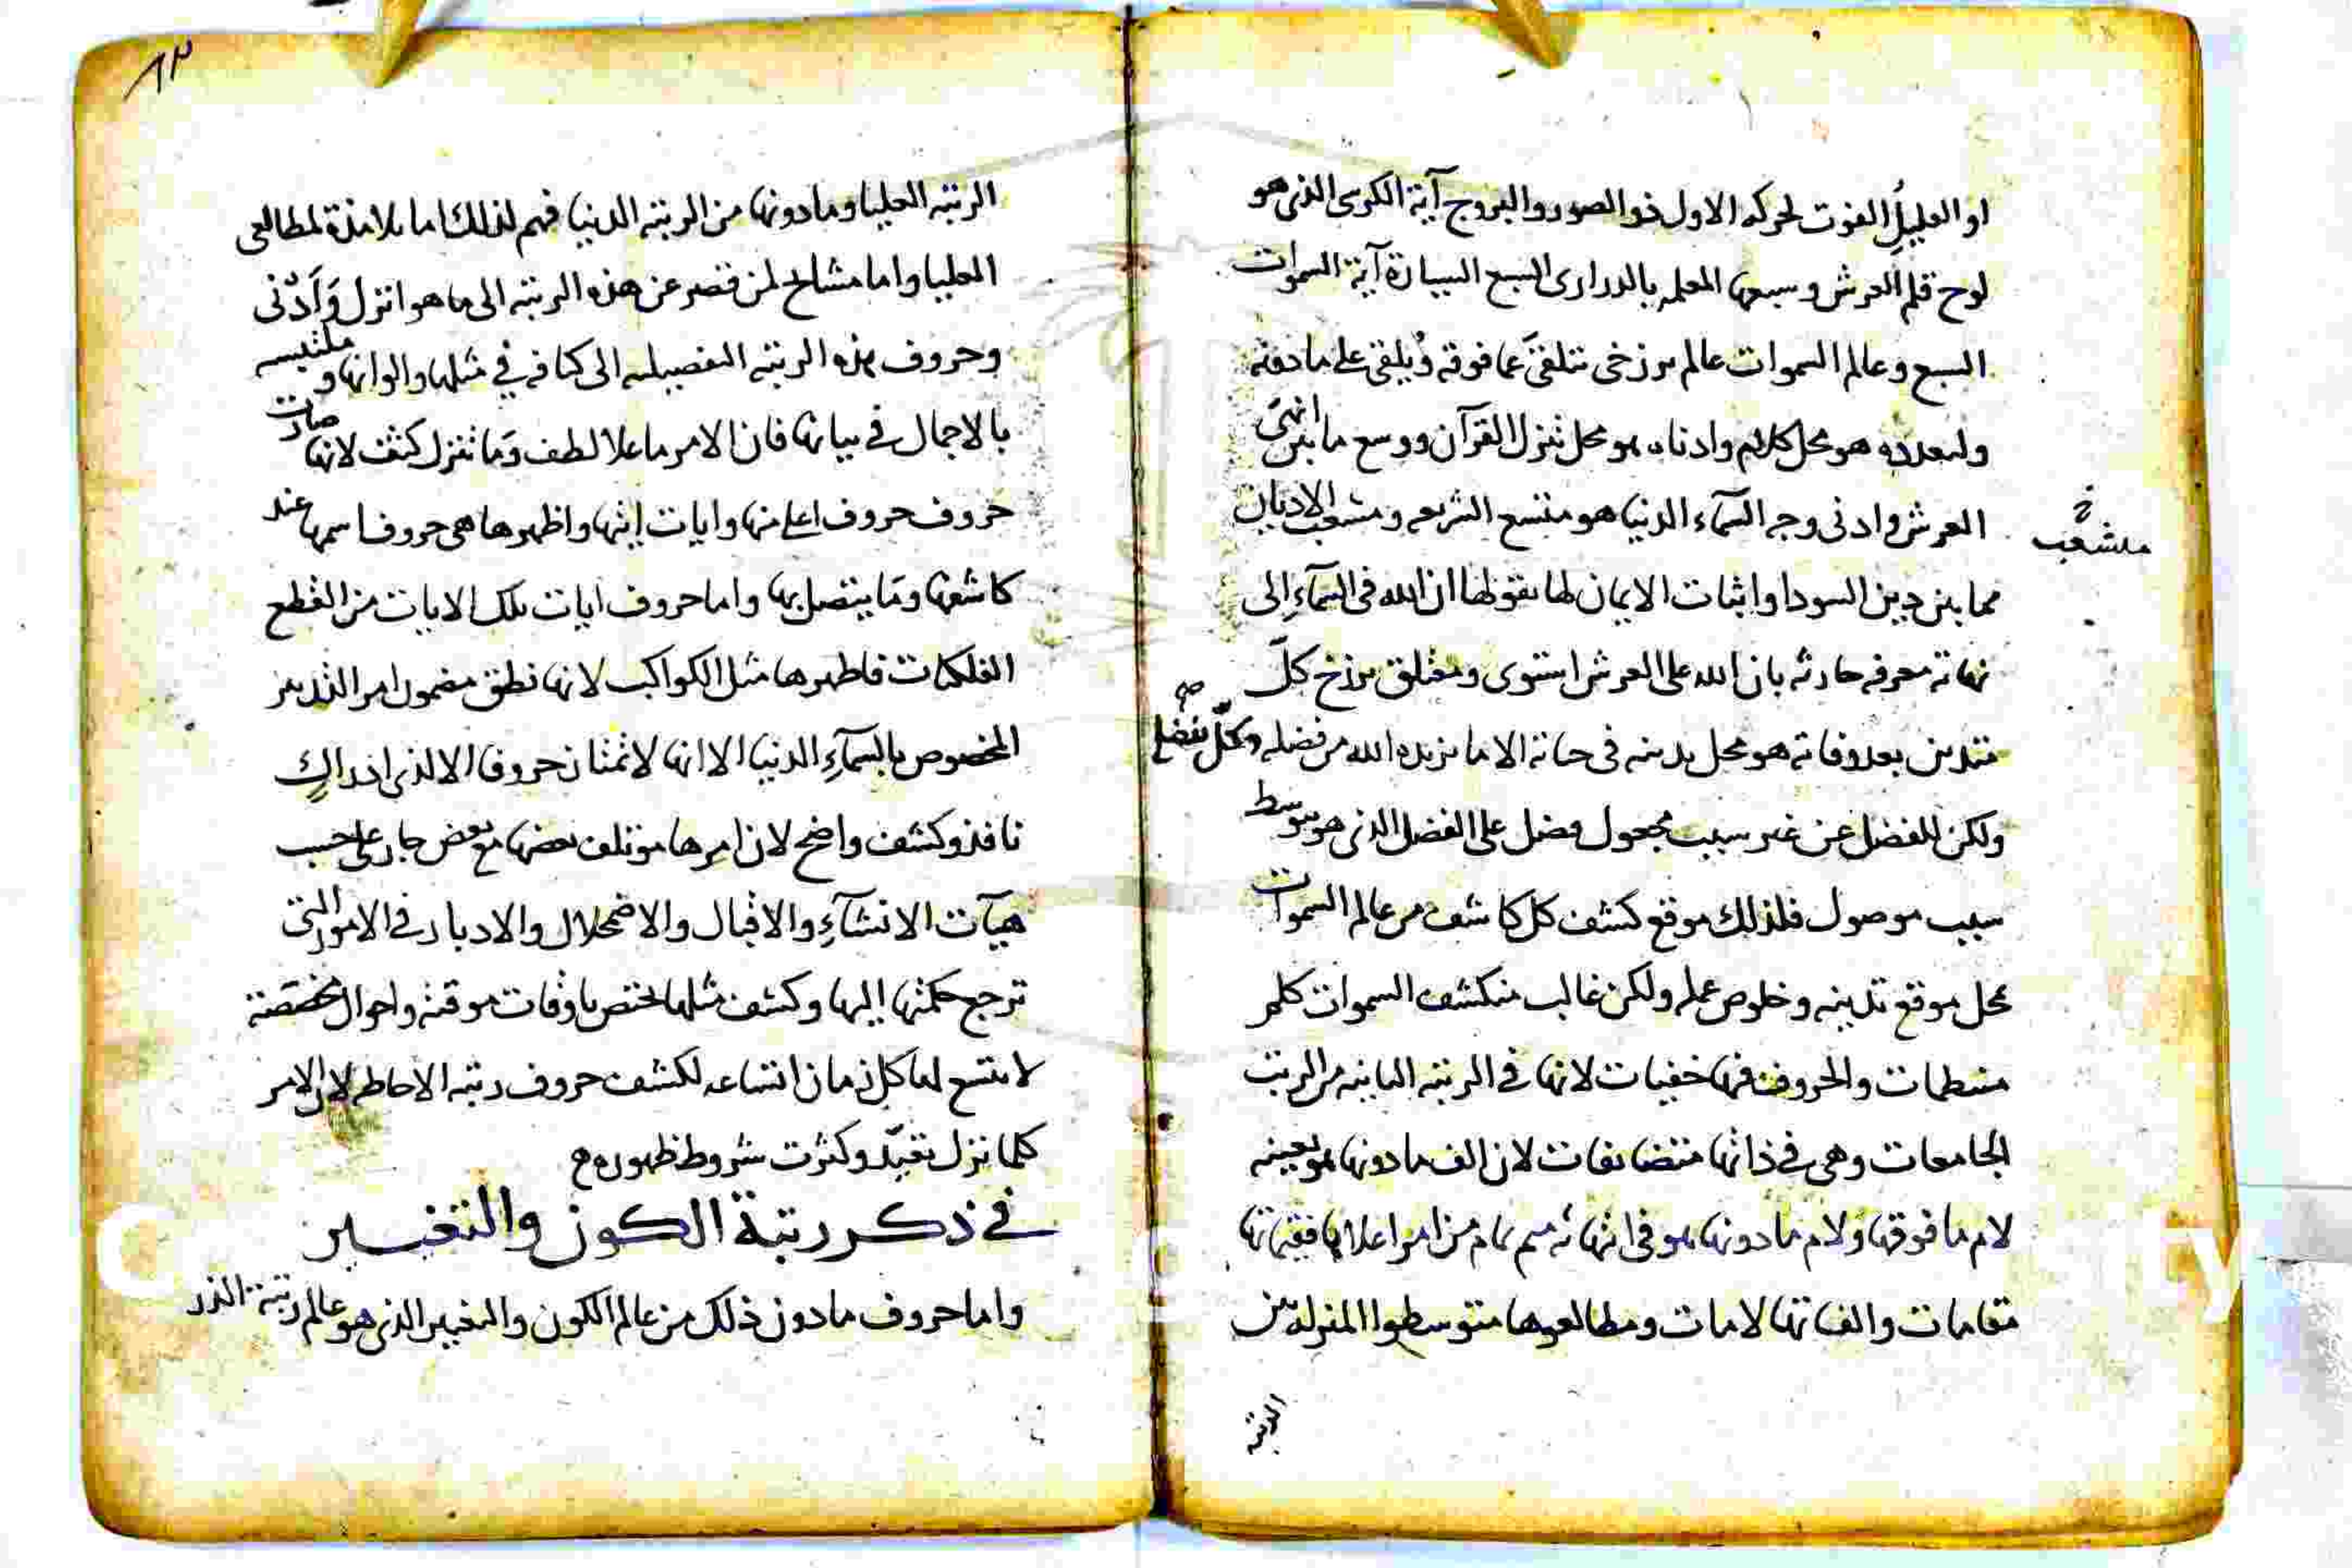 او العليل الفوت لحركه الاول ذو الصور والبروج آية الكرسى الذى هو
لوح قلم العرش وسبعها المعلمه بالدرارى السبع السيارة آية السموات
السبع وعالم السموات عالم برزخى تتلقى عما فوقه ويلقى على ما دونه
ولتعدده هو محل كلام وادناه هو محل تنزل القرآن ووسع ما بين انهى
العرش وادنى وجه السمآء الدنيا هو متسع الشريعه ومتشعب الاديان
منشعب
خ
مما بين دين السودا واثبات الايمان لها بقولها ان الله فى السمآء الى
نهاية معرفه حارثه بان الله على العرش استوى ومعتلق برزخ كل
متدين بعد وفاته هو محل تدينه فى حياته الا ما يزيده الله من فضله وكل بفضل
صح
ولكن للفضل عن غير سبب مجعول فضل على الفضل الذى هو بوسط
سبب موصول فلذلك موقع كشف كل كاشف من عالم السموات
محل موقع تدينه وخلوص عمله ولكن غالب منكشف السموات كلم
منتظمات والحروف فيها خفيات لانها فى الرتبه الثانيه من الرتب
الجامعات وهى فى ذاتها متضايفات لان الف ما دونها هو بعينه
لام ما فوقها ولام ما دونها هو فى انهائه ميم تمام من امر اعلاها فقيماتها
مقامات والفاتها لامات ومطالعوها متوسطوا المنزله بين
الرتبه
٨٢
الرتبه العليا وما دونها من الرتبه الدنيا فهم لذلك اما تلامذة لمطالعى
العليا واما مشايخ لمن قصر عن هذه الرتبه الى ما هو انزل وادنى
وحروف هذه الرتبه التفصيليه الى كثافه فى مثلها والوانها وملتبسه
بالاجمال فى بيانها فان الامر ما علا لطف وما تنزل كثف لانها صارت
حروف حروف اعلى منها وايات ايتها واظهرها هى حروف اسمها عند
كاشفها وما يتصل بها واما حروف ايات تلك الايات من القطع
الفلكيات فاظهرها مثل الكواكب لانها نطق مضمون امر التدبير
المخصوص بالسمآء الدنيا الا انها لا تمتاز حروفا الا لذى ادراك
نافذ وكشف واضح لان امرها موتلف بعضها مع بعض جار على حسب
هيآت الانشآء والاقبال والاضمحلال والادبار فى الامور التى
ترجع حكمتها اليها وكشف مثلها مختص باوقات موقته واحوال مخصصة
لا يتسع لها كل زمان اتساعه لكشف حروف رتبه الاحاطه لان الامر
كلما نزل تقيد وكثرت شروط ظهوره
فى ذكر رتبة الكون والتغيير
واما حروف ما دون ذلك من عالم الكون والتغيير الذى هو عالم رتبة الذر